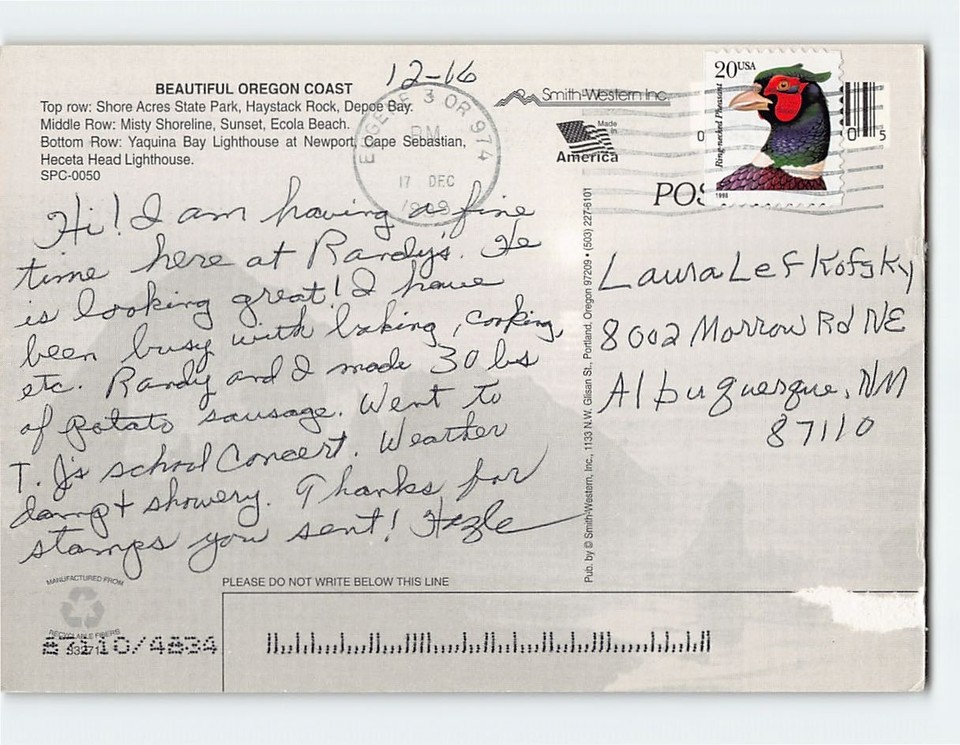 12-16
BEAUTIFUL OREGON COAST
Top row: Shore Acres State Park, Haystack Rock, Depoe Bay.
Middle Row: Misty Shoreline, Sunset, Ecola Beach.
Bottom Row: Yaquina Bay Lighthouse at Newport, Cape Sebastian,
Heceta Head Lighthouse.
SPC-0050
3 OR 974
PM
17 DEC
Smith-Western Inc.
Made in
America
20USA
Ring-necked Pheasant
1998
0 5
POS
Hi! I am having a fine
time here at Randy's. He
is looking great! I have
been busy with baking, cooking,
etc. Randy and I made 30 lbs
of potato sausage. Went to
T. J's school Concert. Weather
damp + showery. Thanks for
stamps you sent! Hazle
Pub. by © Smith-Western, Inc., 1133 N.W. Glisan St., Portland, Oregon 97209 • (503) 227-6101
Laura Lefkofsky
8002 Morrow Rd NE
Albuquerque, NM
87110
MANUFACTURED FROM
RECYCLABLE FIBERS
PLEASE DO NOT WRITE BELOW THIS LINE
87110/4834